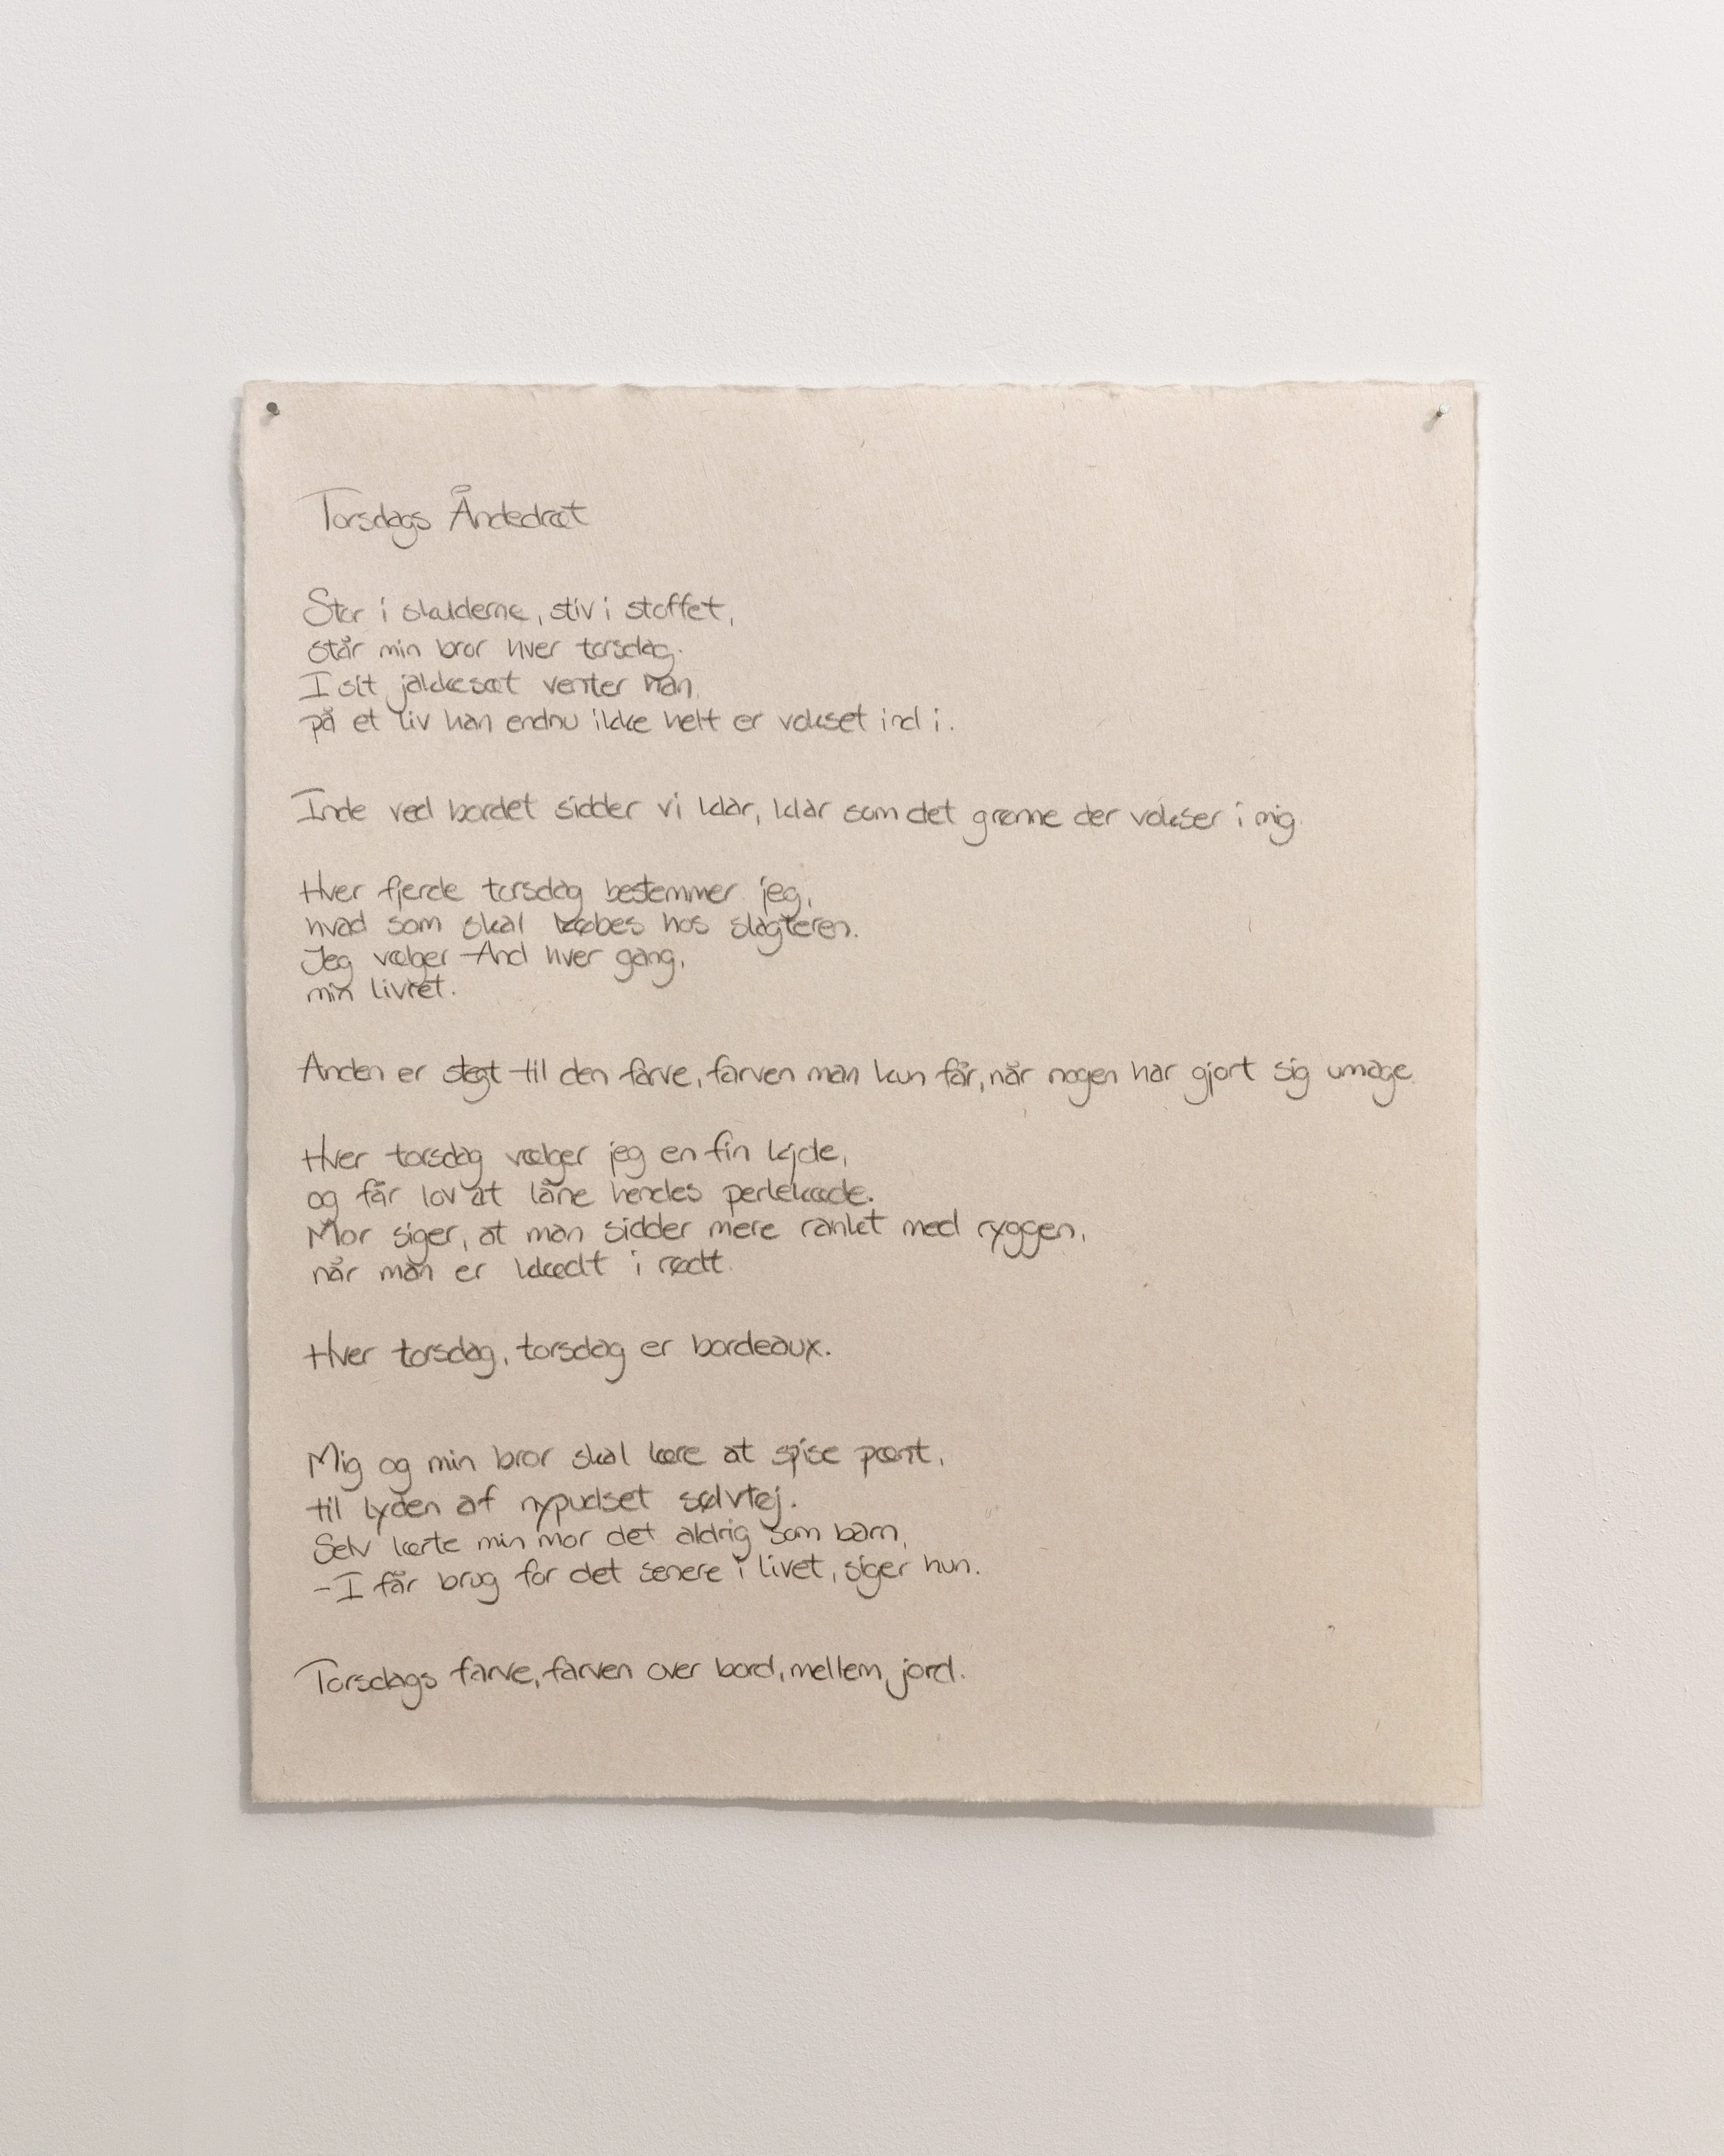 Torsdags Åndedræt
Stor i skulderne, stiv i stoffet,
står min bror hver torsdag.
I sit jakkesæt venter han
på et liv han endnu ikke helt er vokset ind i.
Inde ved bordet sidder vi klar, klar som det grønne der vokser i mig.
Hver fjerde torsdag bestemmer jeg,
hvad som skal købes hos slagteren.
Jeg vælger And hver gang,
min livret.
Anden er stegt til den farve, farven man kun får, når nogen har gjort sig umage.
Hver torsdag vælger jeg en fin kjole,
og får lov at låne hendes perlekæde.
Mor siger, at man sidder mere ranket med ryggen,
når man er klædt i rødt.
Hver torsdag, torsdag er bordeaux.
Mig og min bror skal lære at spise pænt,
til lyden af nypudset sølvtøj.
Selv lærte min mor det aldrig som barn,
- I får brug for det senere i livet, siger hun.
Torsdags farve, farven over bord, mellem jord.